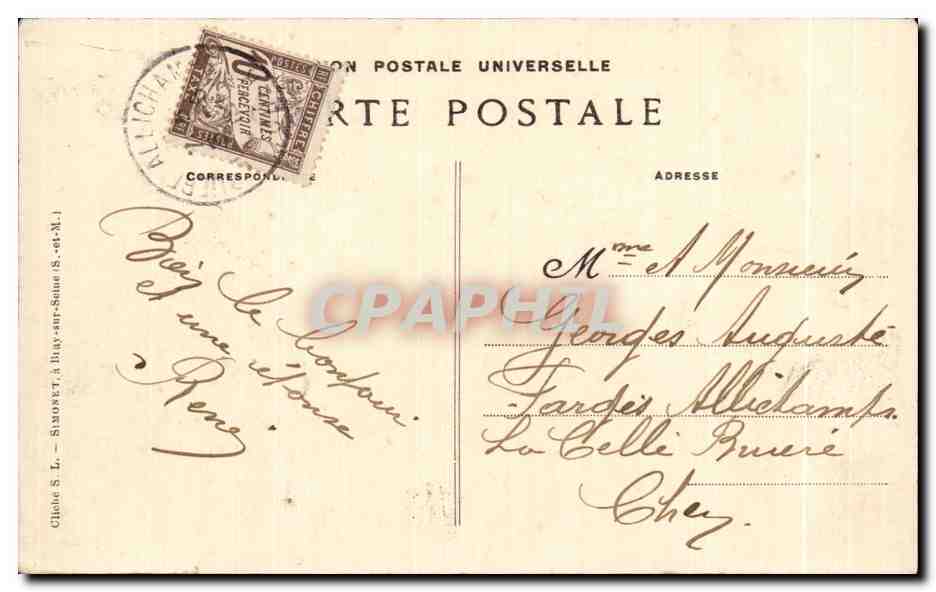 ON POSTALE UNIVERSELLE
RTE POSTALE
CORRESPOND
ADRESSE
ALLICHAM
POSTES
10
CENTIMES
À
PERCEVOIR
CHIFFRE
TAXE
Bien le bonjour
et une
Rene
Mme et Monsieur
Georges Auguste
Farges Allichamps
La Celle Bruere
Cher.
Cliché S. L. — SIMONET, à Bray-sur-Seine (S.-et-M.)
CPAPHIL